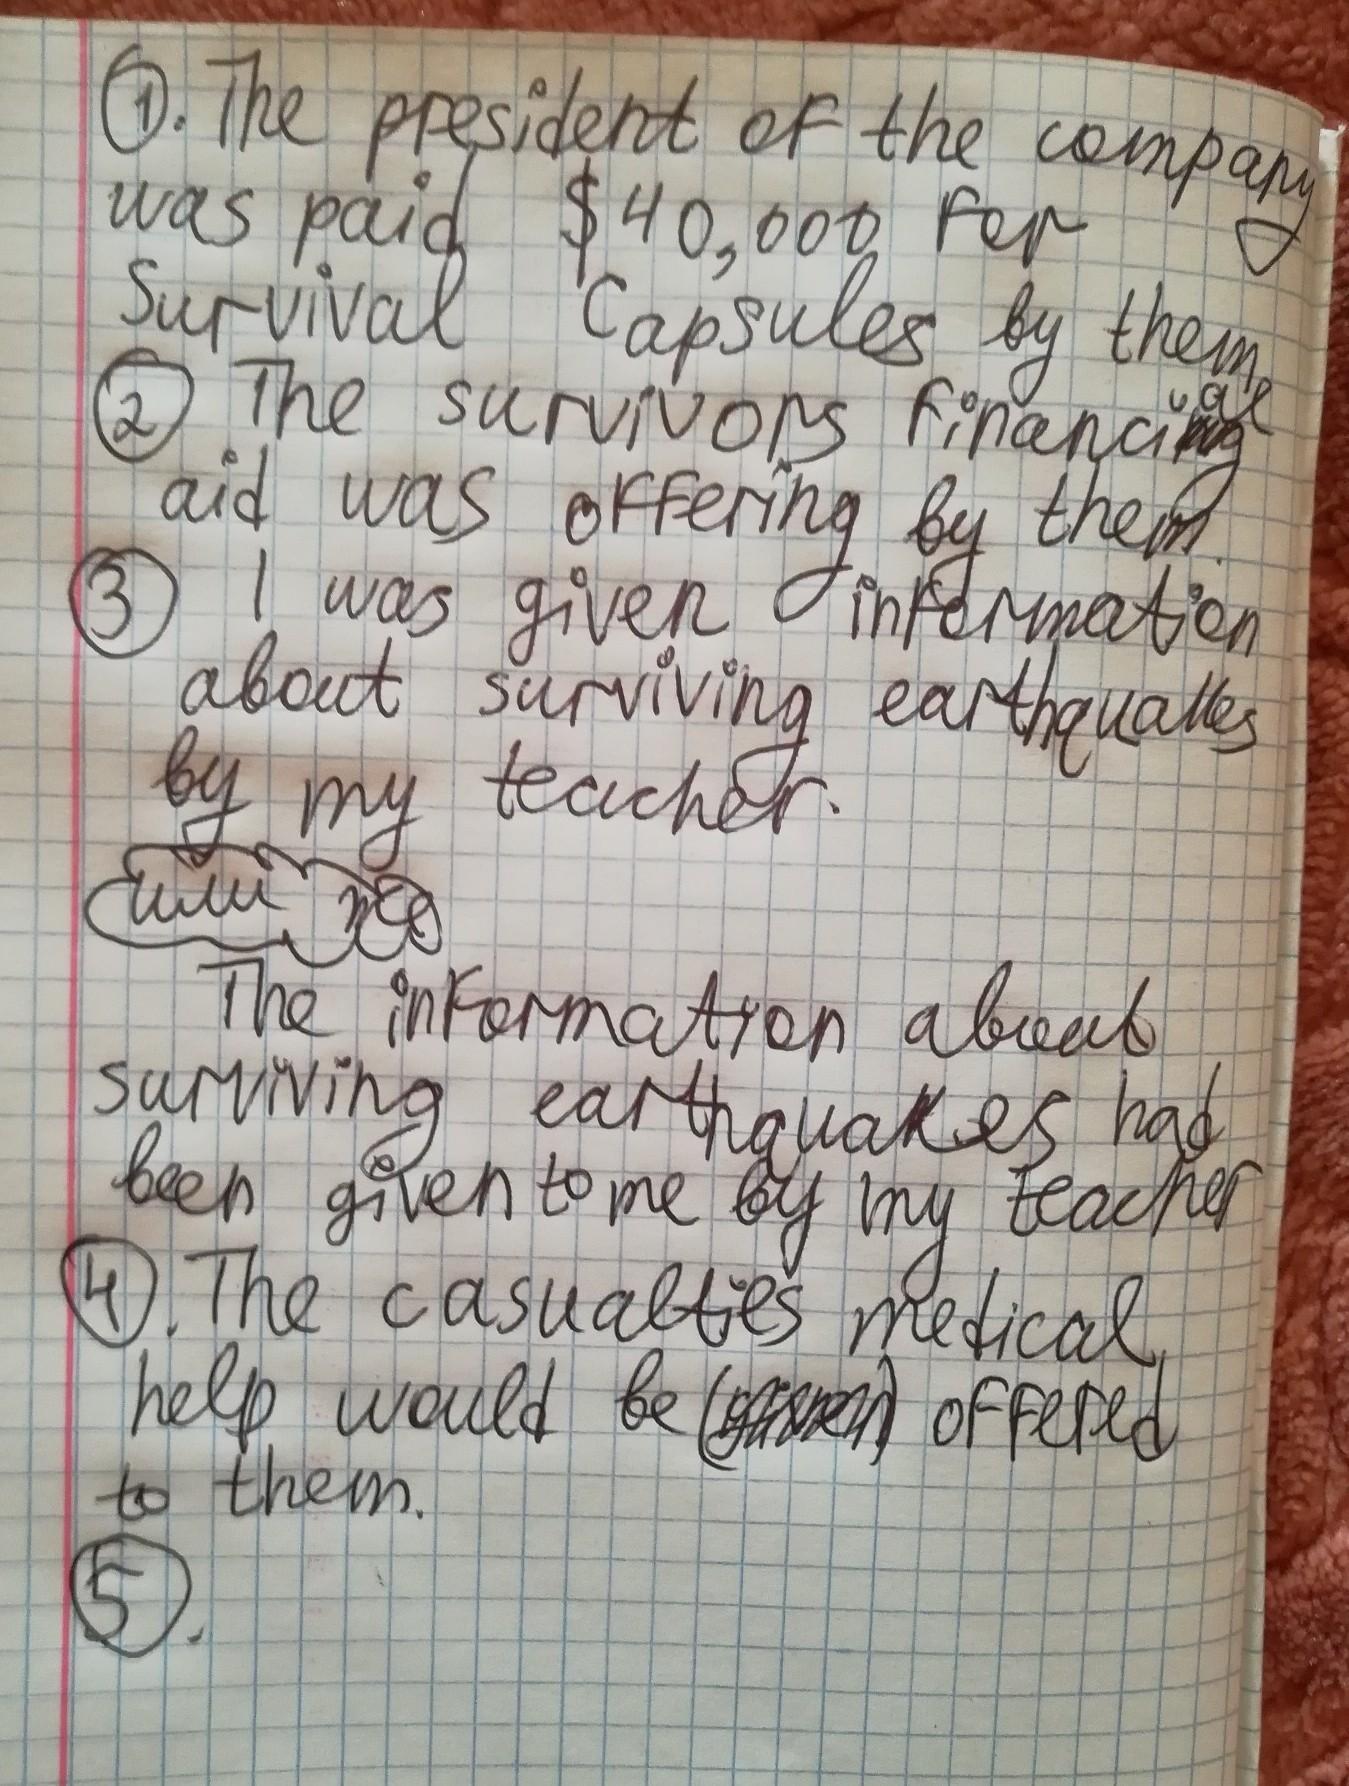 1. The president of the company
was paid $40,000 for
Survival Capsules by them.
2 The survivors financial
aid was offering by them.
3 I was given information
about surviving earthquakes
by my teacher.
или же
The information about
surviving earthquakes had
been given to me by my teacher
4. The casualties medical
help would be offered
to them.
5.